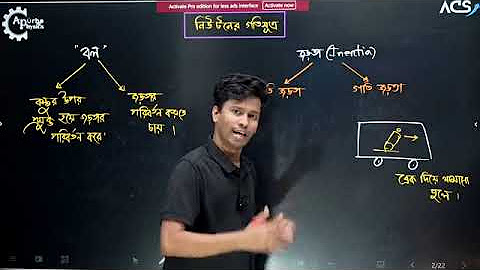 Apurba Physics
Activate Pro edition for less ads interface Activate now
ACS
নিউটনের গতিসূত্র
"বল"
জড়তা (Inertia)
বস্তুর উপর
প্রযুক্ত হয়ে জড়তার
পরিবর্তন করে
জড়তার
পরিবর্তন করতে
চায় ।
তি জড়তা
গতি জড়তা
ব্রেক দিয়ে থামানো
হলে ।
2/22